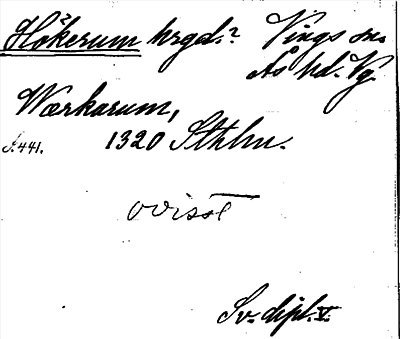 Hökerum hrgd.? Vings sn.
Ås hd. Vg.
Wærkarum,
s. 441. 1320 Sthlm.
ovisst
Sv. dipl. V.